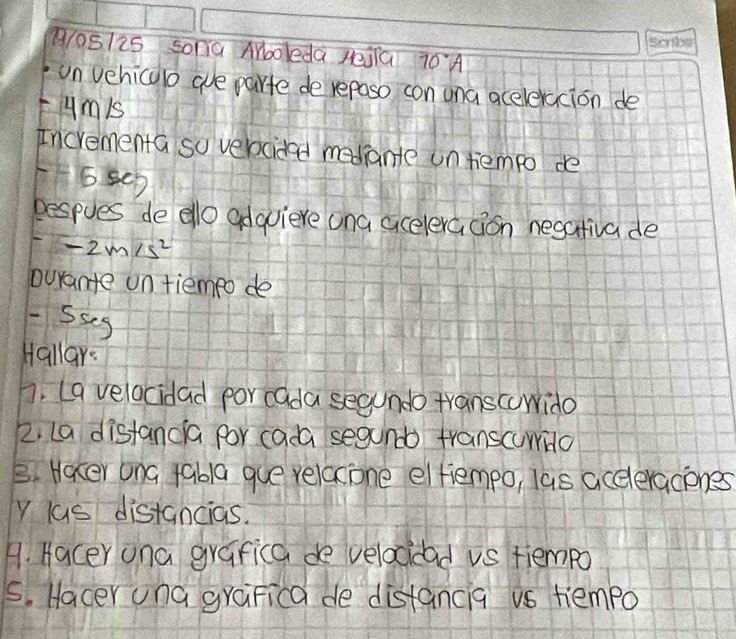 Scribe
19/05/25 Sofia Arboleda Mejia 10°A
• Un vehiculo que parte de reposo con una aceleración de
- 4m/s
Incrementa su velocidad mediante un tiempo de
- 5 seg
Despues de ello adquiere una aceleración negativa de
- -2m/s²
Durante un tiempo de
- 5seg
Hallar:
1. La velocidad por cada segundo transcurrido
2. La distancia por cada segundo transcurrido
3. Hacer una tabla que relacione el tiempo, las aceleraciones
y las distancias.
4. Hacer una gráfica de velocidad vs tiempo
5. Hacer una gráfica de distancia vs tiempo